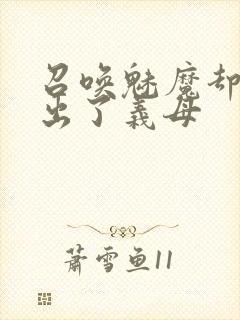 召唤魅魔却
出了義母
萧雪鱼11